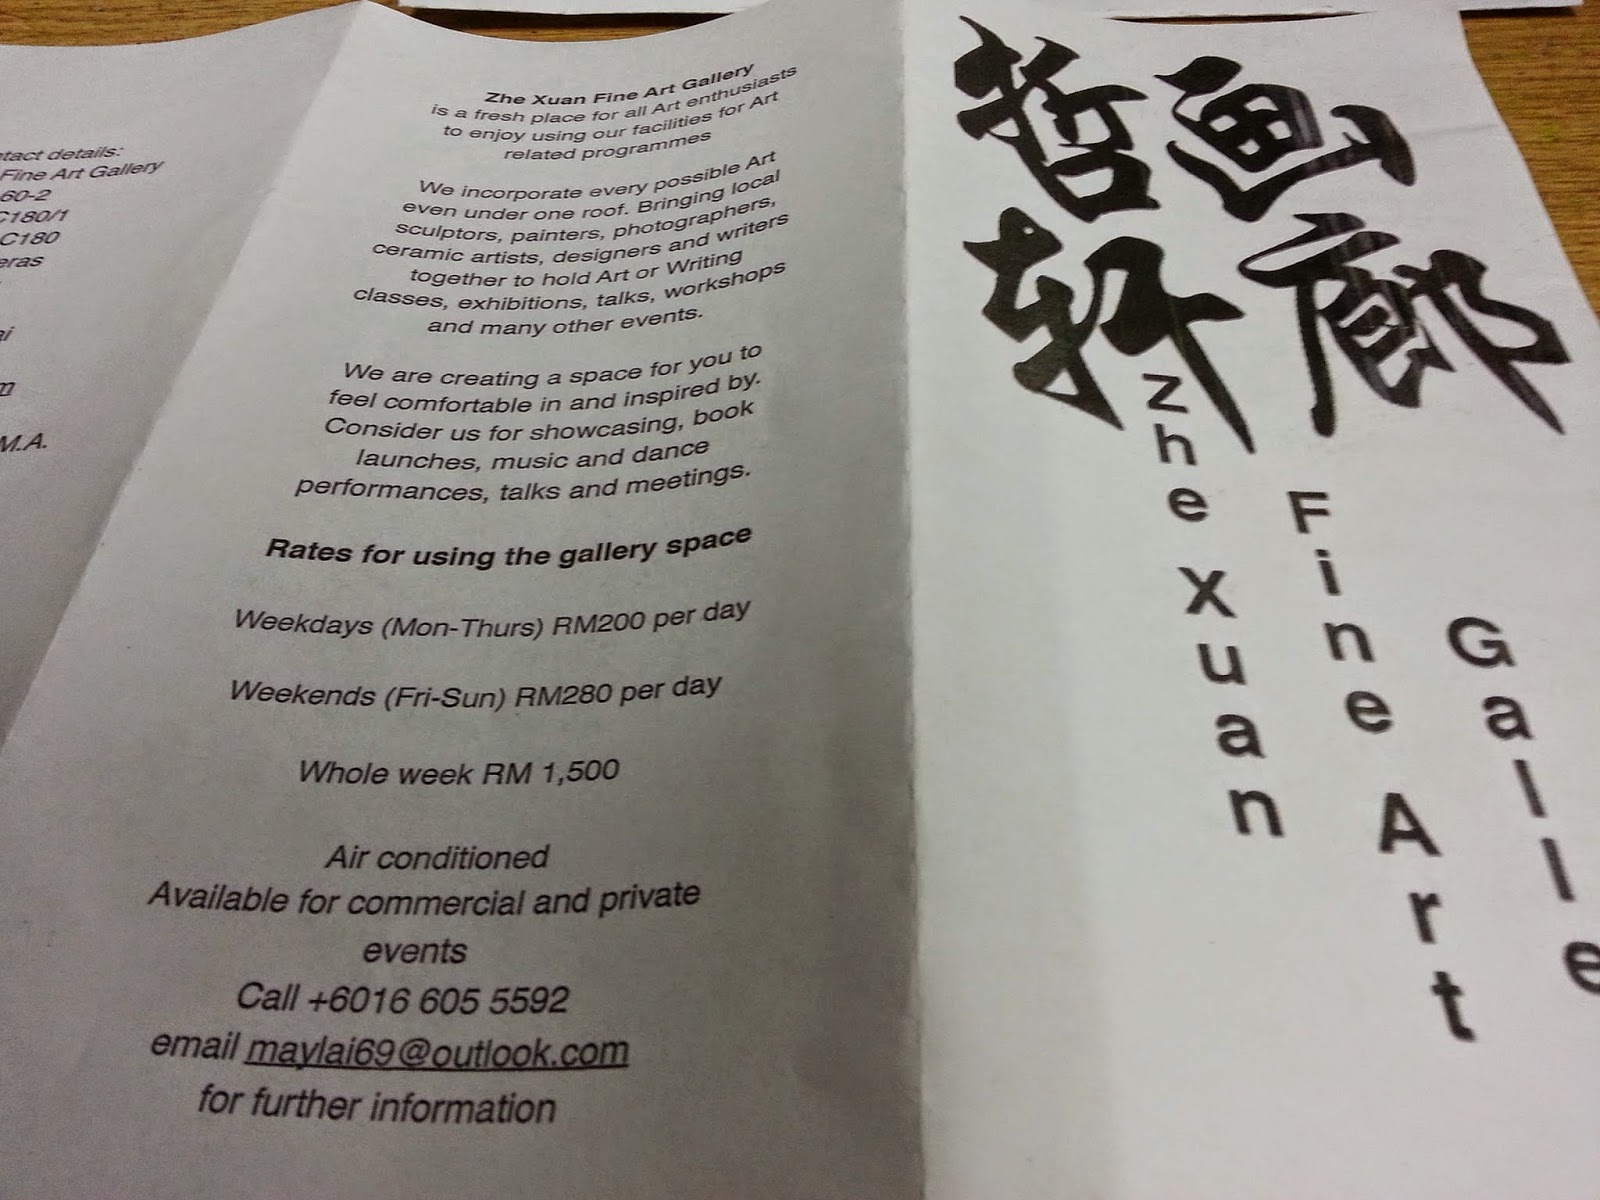 tact details:
Fine Art Gallery
60-2
C180/1
C180
eras
ai
m
M.A.
Zhe Xuan Fine Art Gallery
is a fresh place for all Art enthusiasts
to enjoy using our facilities for Art
related programmes
We incorporate every possible Art
even under one roof. Bringing local
sculptors, painters, photographers,
ceramic artists, designers and writers
together to hold Art or Writing
classes, exhibitions, talks, workshops
and many other events.
We are creating a space for you to
feel comfortable in and inspired by.
Consider us for showcasing, book
launches, music and dance
performances, talks and meetings.
Rates for using the gallery space
Weekdays (Mon-Thurs) RM200 per day
Weekends (Fri-Sun) RM280 per day
Whole week RM 1,500
Air conditioned
Available for commercial and private
events
Call +6016 605 5592
email maylai69@outlook.com
for further information
哲轩
画廊
Zhe Xuan
Fine Art
Galle